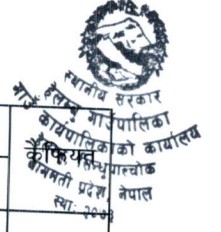 स्थानीय सरकार
हेलम्बु गाउँपालिका
गाउँ कार्यपालिकाको कार्यालय
सिन्धुपाल्चोक
बागमती प्रदेश नेपाल
कैफियत